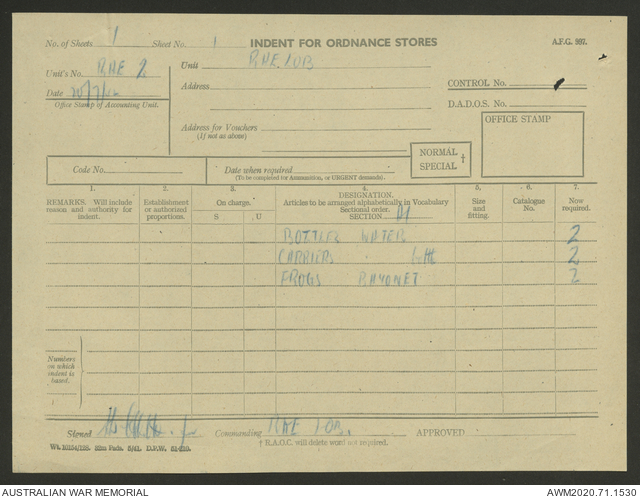 No. of Sheets 1 Sheet No. 1 INDENT FOR ORDNANCE STORES A.F.G. 997.
Unit's No. RAE 2 Unit RAE 1OB
Date 20/7/42 Address CONTROL No.
Office Stamp of Accounting Unit. D.A.D.O.S. No.
Address for Vouchers
(If not as above)
OFFICE STAMP
NORMAL
SPECIAL †
Code No. Date when required
(To be completed for Ammunition, or URGENT demands).
1. 2. 3. 4. 5. 6. 7.
REMARKS. Will include reason and authority for indent.
Establishment or authorized proportions.
On charge.
S. U
DESIGNATION.
Articles to be arranged alphabetically in Vocabulary Sectional order.
SECTION A1
Size and fitting.
Catalogue No.
Now required.
BOTTLES WATER 2
CARRIERS " 2
FROGS BAYONET 2
Numbers
on which
indent is
based.
Signed Commanding RAE 1OB. APPROVED
† R.A.O.C. will delete word not required.
AUSTRALIAN WAR MEMORIAL AWM2020.71.1530